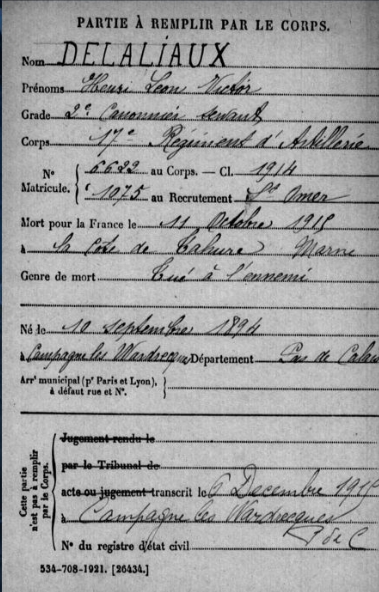 PARTIE À REMPLIR PAR LE CORPS.
Nom DELALIAUX
Prénoms Henri Léon Victor
Grade 2e Canonnier servant
Corps 17e Régiment d'Artillerie
No Matricule. { 6622 au Corps. — Cl. 1914
1075 au Recrutement St Omer
Mort pour la France le 11 Octobre 1915
à la Côte de Tahure Marne
Genre de mort Tué à l'ennemi
Né le 10 septembre 1894
à Campagne les Wardrecques Département Pas de Calais
Arrt municipal (pr Paris et Lyon),
à défaut rue et No.
Cette partie
n'est pas à remplir
par le Corps.
Jugement rendu le
par le Tribunal de
acte ou jugement transcrit le 6 Decembre 1915
à Campagne les Wardrecques
P de C
No du registre d'état civil
534-708-1921. [26434.]